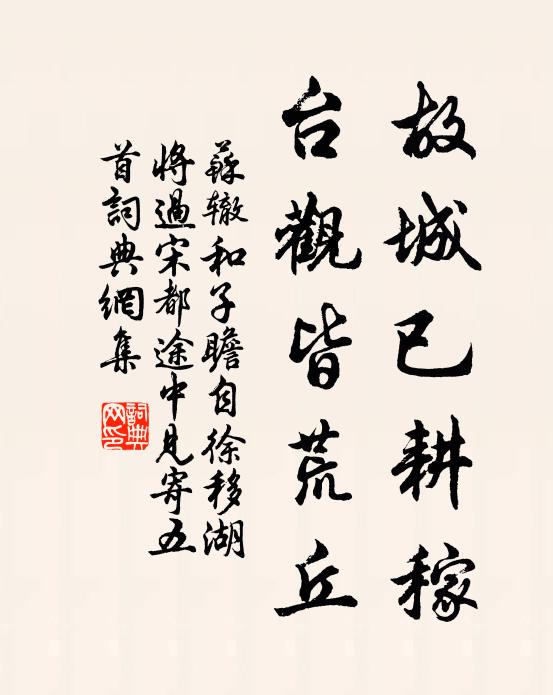 故城已耕稼
台觀皆荒丘
蘇辙和子瞻自徐移湖
将過宋都途中見寄五
首詞典網集
詞典网印